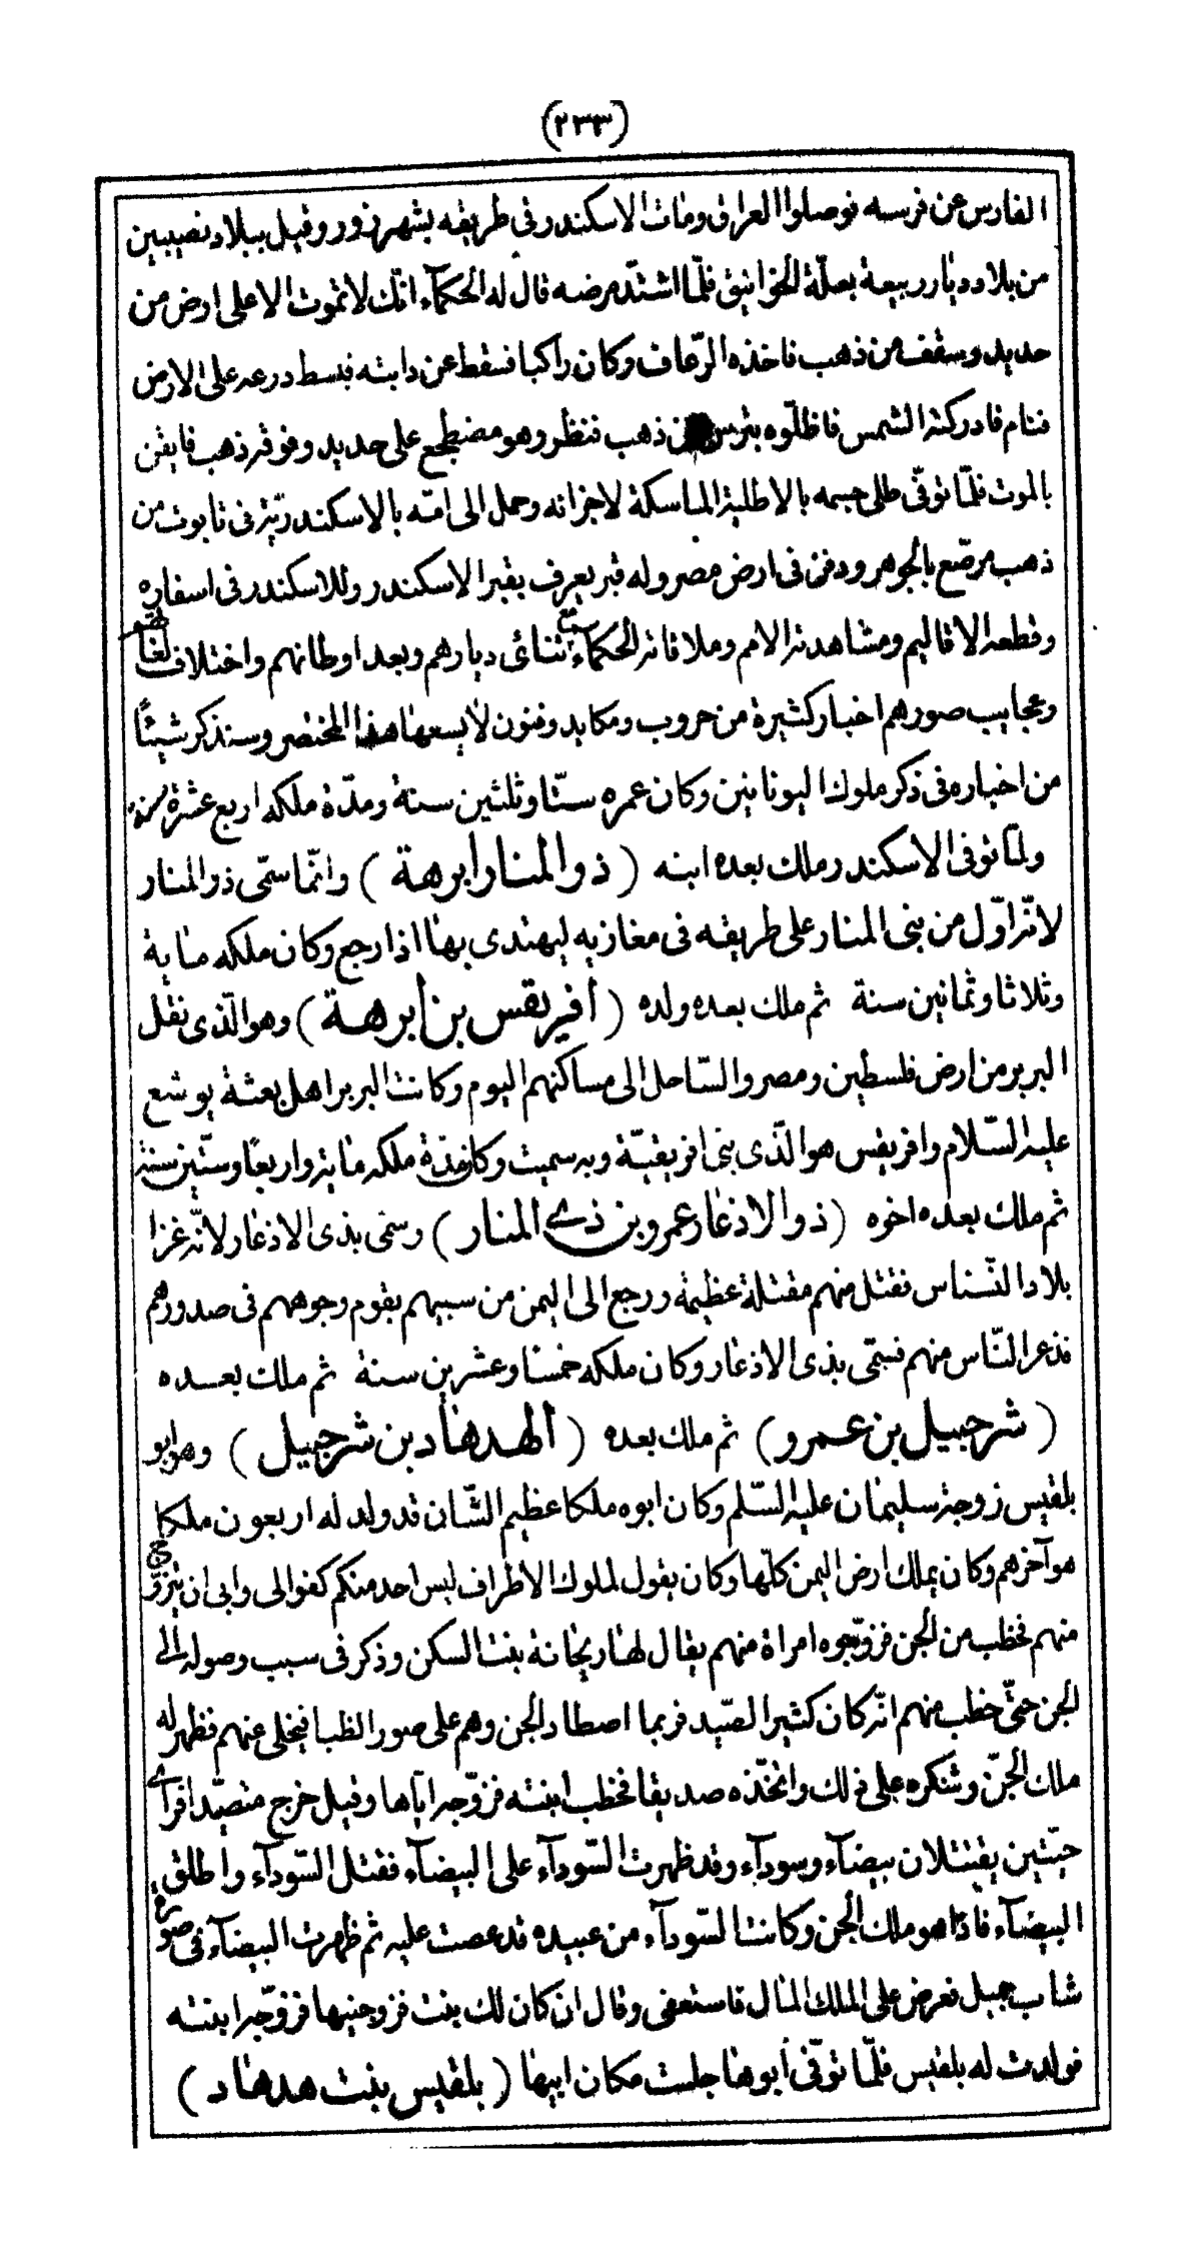 (٢٣٣)
الفارس عن فرسه فوصلوا العراق ومات الاسكندر فى طريقه بشهرزور وقيل ببلاد نصيبين
من بلاد ديار ربيعة بعلّة الخوانيق فلمّا اشتدّ مرضه قال له الحكمآء انّك لاتموت الا على ارض من
حديد وسقف من ذهب فاخذه الرّعاف وكان راكبا فسقط عن دابته فبسط درعه على الارض
فنام فادركته الشمس فاظلّوه بترس من ذهب فنظر وهو مضطجع على حديد وفوقه ذهب فايقن
بالموت فلمّا توفّى طلى جسمه بالاطلية الماسكة لاجزائه وحمل الى امّه بالاسكندريّة فى تابوت من
ذهب مرصّع بالجوهر ودفن فى ارض مصر وله قبر يعرف بقبر الاسكندر وللاسكندر فى اسفاره
وقطعه الاقاليم ومشاهدته الامم وملاقاته الحكمآء مع تنائى ديارهم وبعد اوطانهم واختلاف لغاتهم
وعجايب صورهم اخبار كثيرة من حروب ومكايد وفنون لايسعها هذا المختصر وسنذكر شيئًا
من اخباره فى ذكر ملوك اليونانيين وكان عمره ستّا وثلثين سنة ومدّة ملكه اربع عشرة سنة
ولمّا توفى الاسكندر ملك بعده ابنه ( ذو المنار ابرهة ) وانّما سمّى ذو المنار
لانّه اوّل من بنى المنار على طريقه فى مغازيه ليهتدى بها اذا رجع وكان ملكه ماية
وثلاثا وثمانين سنة ثم ملك بعده ولده ( أفريقس بن أبرهة ) وهو الّذى نقل
البربر من ارض فلسطين ومصر والسّاحل الى مساكنهم اليوم وكانت البربر اهل بعثة يوشع
عليه السّلام وافريقس هو الّذى بنى افريقيّة وبه سميت وكان مدّة ملكه ماية واربعًا وستّين سنة
ثم ملك بعده اخوه ( ذو الاذعار عمرو بن ذى المنار ) وسمّى بذى الاذعار لانّه غزا
بلاد النّسناس فقتل منهم مقتلة عظيمة ورجع الى اليمن من سبيهم بقوم وجوههم فى صدورهم
فذعر النّاس منهم فسمّى بذى الاذعار وكان ملكه خمسا وعشرين سنة ثم ملك بعده
( شرحبيل بن عمرو ) ثم ملك بعده ( الهدهاد بن شرحبيل ) وهو ابو
بلقيس زوجة سليمان عليه السّلم وكان ابوه ملكا عظيم الشّان قد ولد له اربعون ملكا
هو آخرهم وكان يملك ارض اليمن كلّها وكان يقول لملوك الاطراف ليس احد منكم كفوا لى وابى ان يتزوّج
منهم فخطب من الجن فزوّجوه امراة منهم يقال لها ريحانة بنت السكن وذكر فى سبب وصوله الى
الجن حتّى خطب منهم انّه كان كثير الصّيد فربما اصطاد الجن وهم على صور الظبا فيخلى عنهم فظهر له
ملك الجنّ وشكره على ذلك واتخّذه صديقا فخطب أبنته فزوّجه ايّاها وقيل خرج متصيّدا فراى
حيّتين يقتتلان بيضآء وسودآء وقد ظهرت السّودآء على البيضآء فقتل السّودآء واطلق
البيضآء فاذا هو ملك الجن وكانت السّودآء من عبيده قد عصت عليه ثم ظهرت البيضآء فى صورة
شاب جميل فعرض على الملك المال فاستعفى وقال ان كان لك بنت فزوجنيها فزوّجه ابنته
فولدت له بلقيس فلمّا توفّى أبوها جلست مكان ابيها ( بلقيس بنت هدهاد )